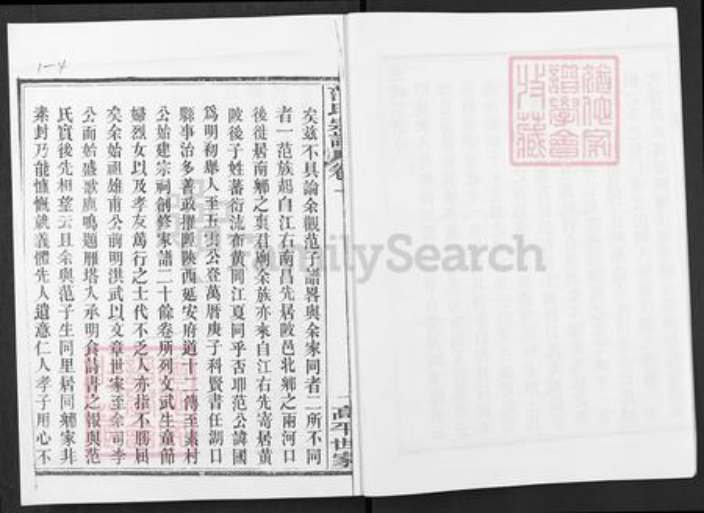 1-4
范氏宗譜卷首
高平世家
矣茲不具論余觀范子譜畧與余家同者二所不同
者一范族起自江右南昌先居陂邑北鄉之兩河口
後徙居南鄉之 余族亦來自江右先寄居黃
陂後子姓蕃衍流布黃岡江夏同乎否耶范公諱國
為明初舉人至五雲公登萬曆庚子科賢書任湖口
縣事治多善政擢陞陝西延安府道十二傳至素村
公始建宗祠創修家譜二十餘卷所列文武生童節
婦烈女以及孝友篤行之士代不乏人亦指不勝屈
矣余始祖雄甫公前明洪武以文章世家至余司李
公而始盛歌鹿鳴題雁塔入承明食詩書之報與范
氏實後先相望云且余與范子生同里居同鄉家非
素封乃能慷慨就義體先人遺意仁人孝子用心不
譜學會
收藏
FamilySearch